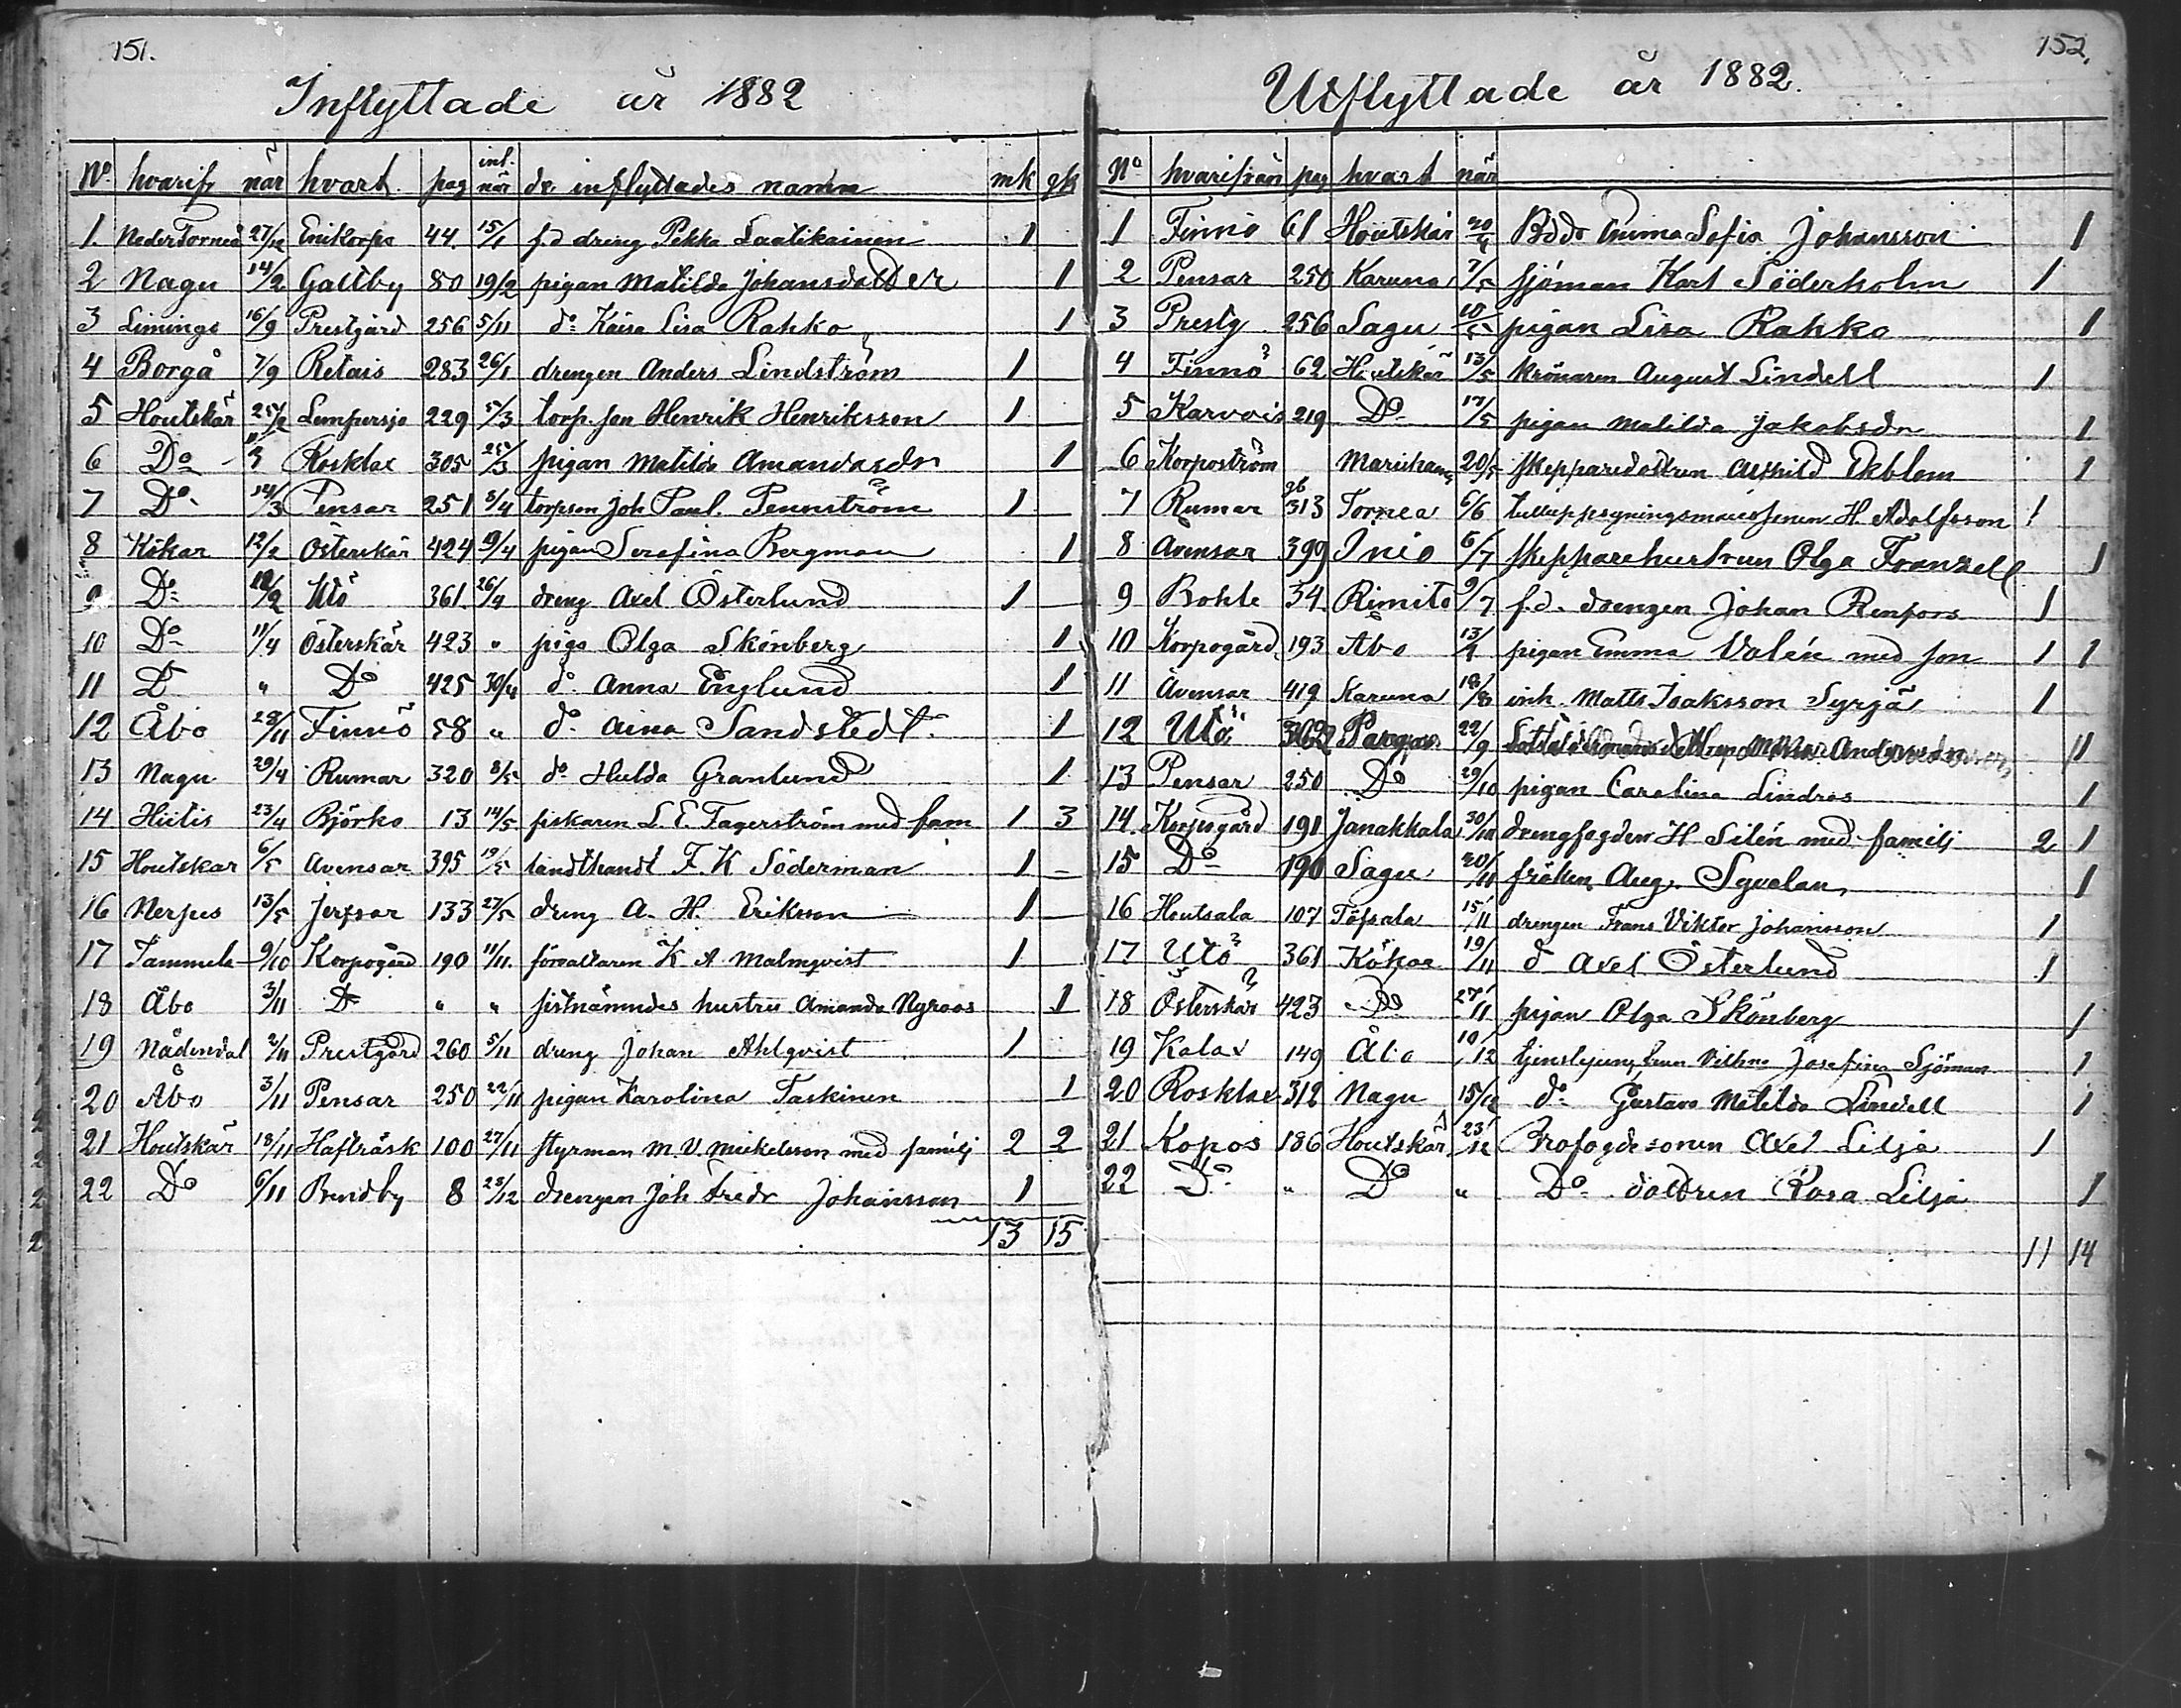 151.
Inflyttade år 1882
No hvarifr när hvart pag inl. när de inflyttades namn mk qk
1. Neder Torneå 27/12 Eriktorps 44. 15/1 f.d dreng Pekka Laatikainen 1
2 Nagu 14/2 Galtby 80 19/2 pigan Matilda Johansdotter 1
3 Limingo 16/9 Prestgård 256 5/11 do Kaisa Lisa Rahko 1
4 Borgå 7/9 Retais 283 26/1 drengen Anders Lindström 1
5 Houtskär 25/2 Lempersjö 229 5/3 torp.son Henrik Henriksson 1
6 Do Rosklax 305 25/3 pigan Matilda Amandasdr 1
7 Do 14/3 Pensar 251 8/4 torpson Joh Paul. Pennström 1
8 Kökar 12/2 Österskär 424 9/4 pigan Serafina Bergman 1
9 Do 12/2 Utö 361. 26/4 dreng Axel Österlund 1
10 Do 11/4 Österskär 423 " piga Olga Skönberg 1
11 D " Do 425 30/4 do Anna Englund 1
12 Åbo 28/11 Finnö 58 " do Aina Sandstedt. 1
13 Nagu 29/4 Rumar 320 8/5 do Hulda Granlund 1
14 Hiitis 23/4 Björko 13 14/5 fiskaren L. E. Fagerström med fam 1 3
15 Houtskar 6/5 Avensar 395 19/5 handthandt F. K Söderman 1 –
16 Nerpes 13/5 Jerfsar 133 27/5 dreng A. H. Eriksson 1
17 Tammela 9/10 Korpogård 190 11/11. förvaltaren K A Malmqvist 1
18 Åbo 3/11 Do " " sistnämndes hustru Amanda Nyroos 1
19 Nådendal 2/11 Prestgård 260 5/11 dreng Johan Ahlqvist 1
20 Åbo 3/11 Pensar 250 22/11 pigan Karolina Taskinen 1
21 Houtskär 18/11 Hafträsk 100 27/11 styrman M. V. Mickelsson med familj 2 2
22 Do 6/11 Brendby 8 25/12 drengen Joh Fredr Johansson 1
13 15
152.
Utflyttade år 1882.
No hvarifrån pag hvart när
1 Finnö 61 Houtskär Sofia Johansson 1
2 Pensar 250 Karuna 7/5 sjöman Karl Söderholm 1
3 Prestg 256 Sagu 10/5 pigan Lisa Rahko 1
4 Finnö 62 Houtskär 13/5 krönaren August Lindell 1
5 Karvois 219 Do 17/5 pigan Matilda Jakobsdr 1
6 Korpoström Marieham 20/5 skepparedottren Ekblom 1
7 Rumar 313 Tornea 6/6 H. Adolfsson 1
8 Avensar 399 Inio 6/7 skepparehustrun Olga Franzell 1
9 Bohle 34 Rimito 9/7 f.d. drengen Johan Renfors 1
10 Korpogård 193 Åbo pigan Emma Valén med son 1 1
11 Avensar 419 Karuna 18/8 inh. Matts Isaksson Syrjä 1
12 Utö 362 Pargas 22/9 1
13 Pensar 250 Do 29/10 pigan Carolina Lindros 1
14. Korpogård 191 Janakkala 30/10 drengfogden H Silén med familj 2 1
15 Do 190 Sagu fröken Aug. Sevelan 1
16 Houtsala 107 Töfsala 15/11 drengen Frans Viktor Johansson 1
17 Utö 361 Kökar 19/11 d Axel Österlund 1
18 Österskär 423 Do 27/11 pigan Olga Skönberg 1
19 Kalax 149 Åbo 10/12 Vilhna Josefina Sjöman 1
20 Rosklax 312 Nagu 15/12 do Gustava Matilda Lindell 1
21 Kopos 186 Houtskär 23/12 Brofogdesonen Axel Lilja 1
22 Do " Do " Do dottren Rosa Lilja 1
11 14